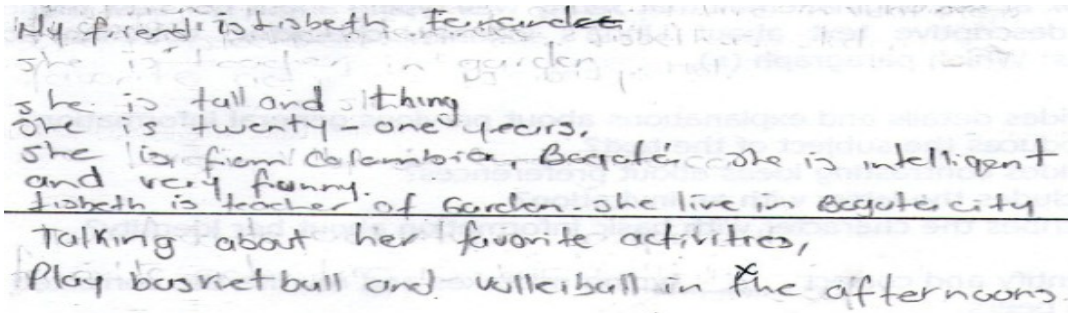 My friend is Lisbeth
she is teacher in garden
she is tall and
she is twenty-one years,
she is from Colombia, Bogota she is intelligent
and very funny.
Lisbeth is teacher of Garden she live in Bogota city
Talking about her favorite activities,
Play basketball and volleiball in the afternoons.